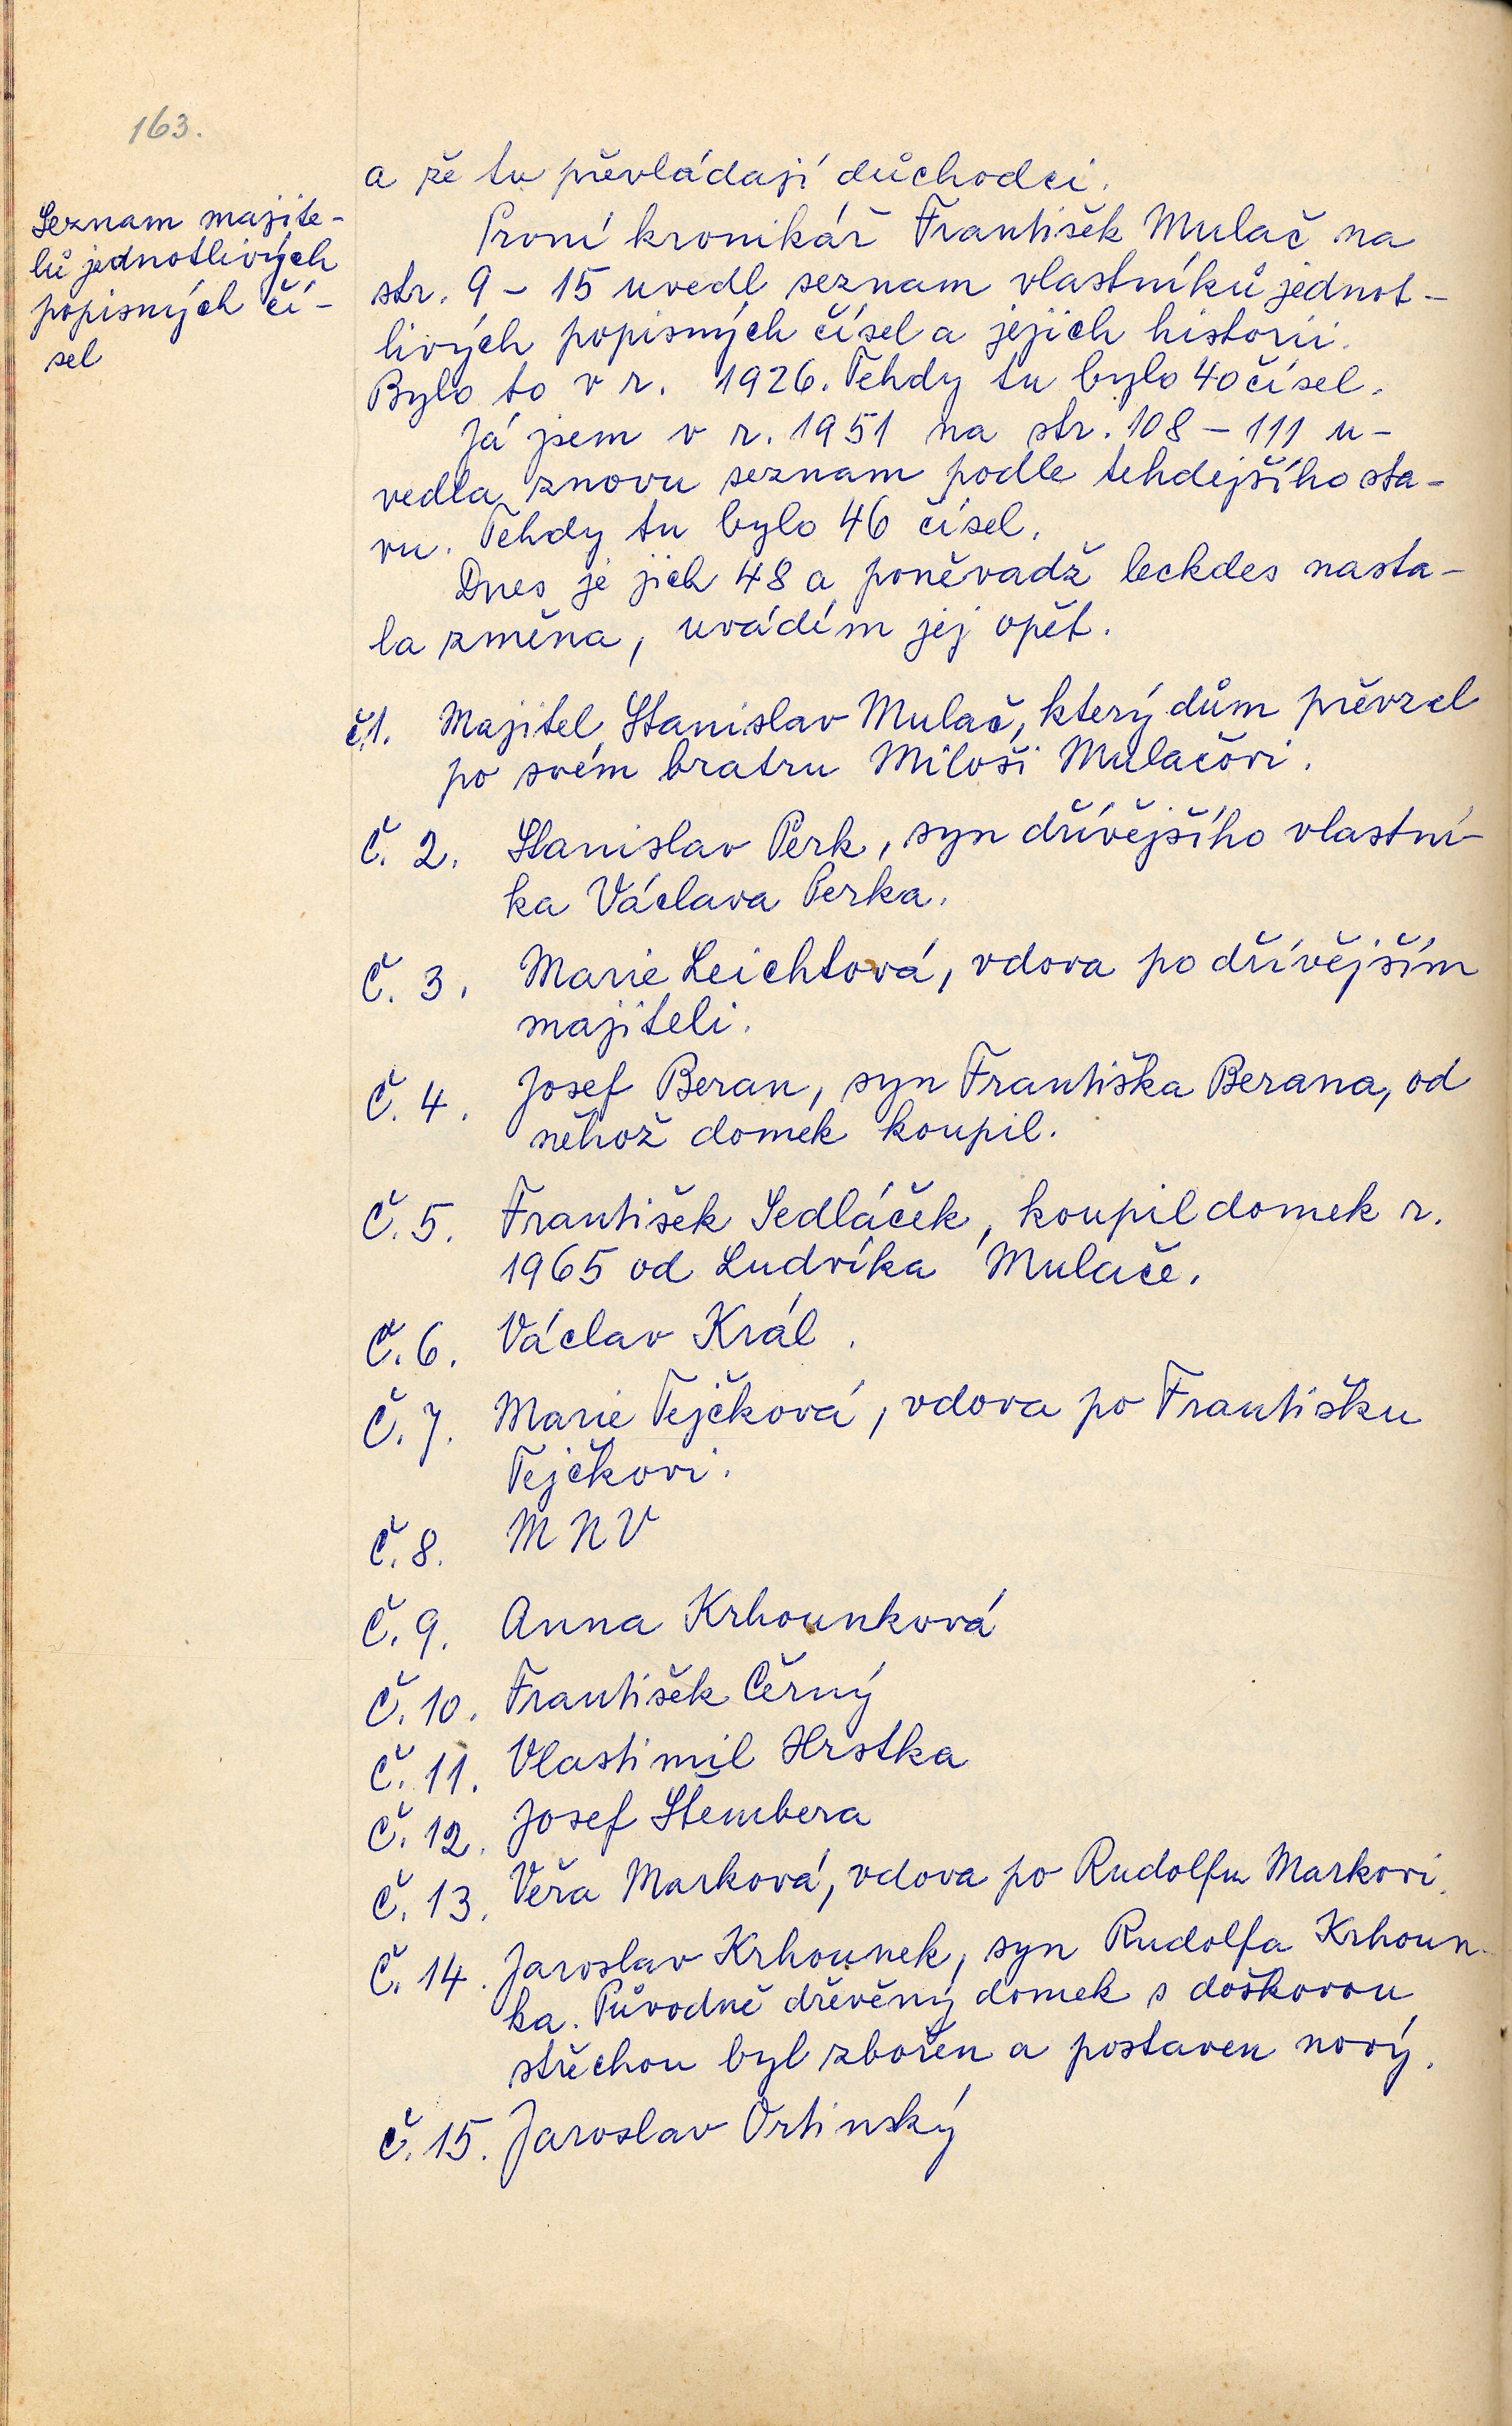 163.
Seznam majite-
lů jednotlivých
popisných čí-
sel
a že tu převládají důchodci.
První kronikář František Mulač na
str. 9 - 15 uvedl seznam vlastníků jednot-
livých popisných čísel a jejich historii.
Bylo to v r. 1926. Tehdy tu bylo 40 čísel.
Já jsem v r. 1951 na str. 108 - 111 u-
vedla znovu seznam podle tehdejšího sta-
vu. Tehdy tu bylo 46 čísel.
Dnes je jich 48 a poněvadž leckdes nasta-
la změna, uvádím jej opět.
č.1. Majitel Stanislav Mulač, který dům převzal
po svém bratru Miloši Mulačovi.
Č. 2. Stanislav Perk, syn dřívějšího vlastní-
ka Václava Perka.
Č. 3. Marie Leichtová, vdova po dřívějším
majiteli.
Č. 4. Josef Beran, syn Františka Berana, od
něhož domek koupil.
Č. 5. František Sedláček, koupil domek r.
1965 od Ludvíka Mulače.
Č. 6. Václav Král.
Č. 7. Marie Tejčková, vdova po Františku
Tejčkovi.
Č. 8. MNV
Č. 9. Anna Krhounková
Č. 10. František Černý
Č. 11. Vlastimil Hrstka
Č. 12. Josef Štembera
Č. 13. Věra Marková, vdova po Rudolfu Markovi.
Č. 14. Jaroslav Krhounek, syn Rudolfa Krhoun-
ka. Původně dřevěný domek s doškovou
střechou byl zbořen a postaven nový.
Č. 15. Jaroslav Ortinský